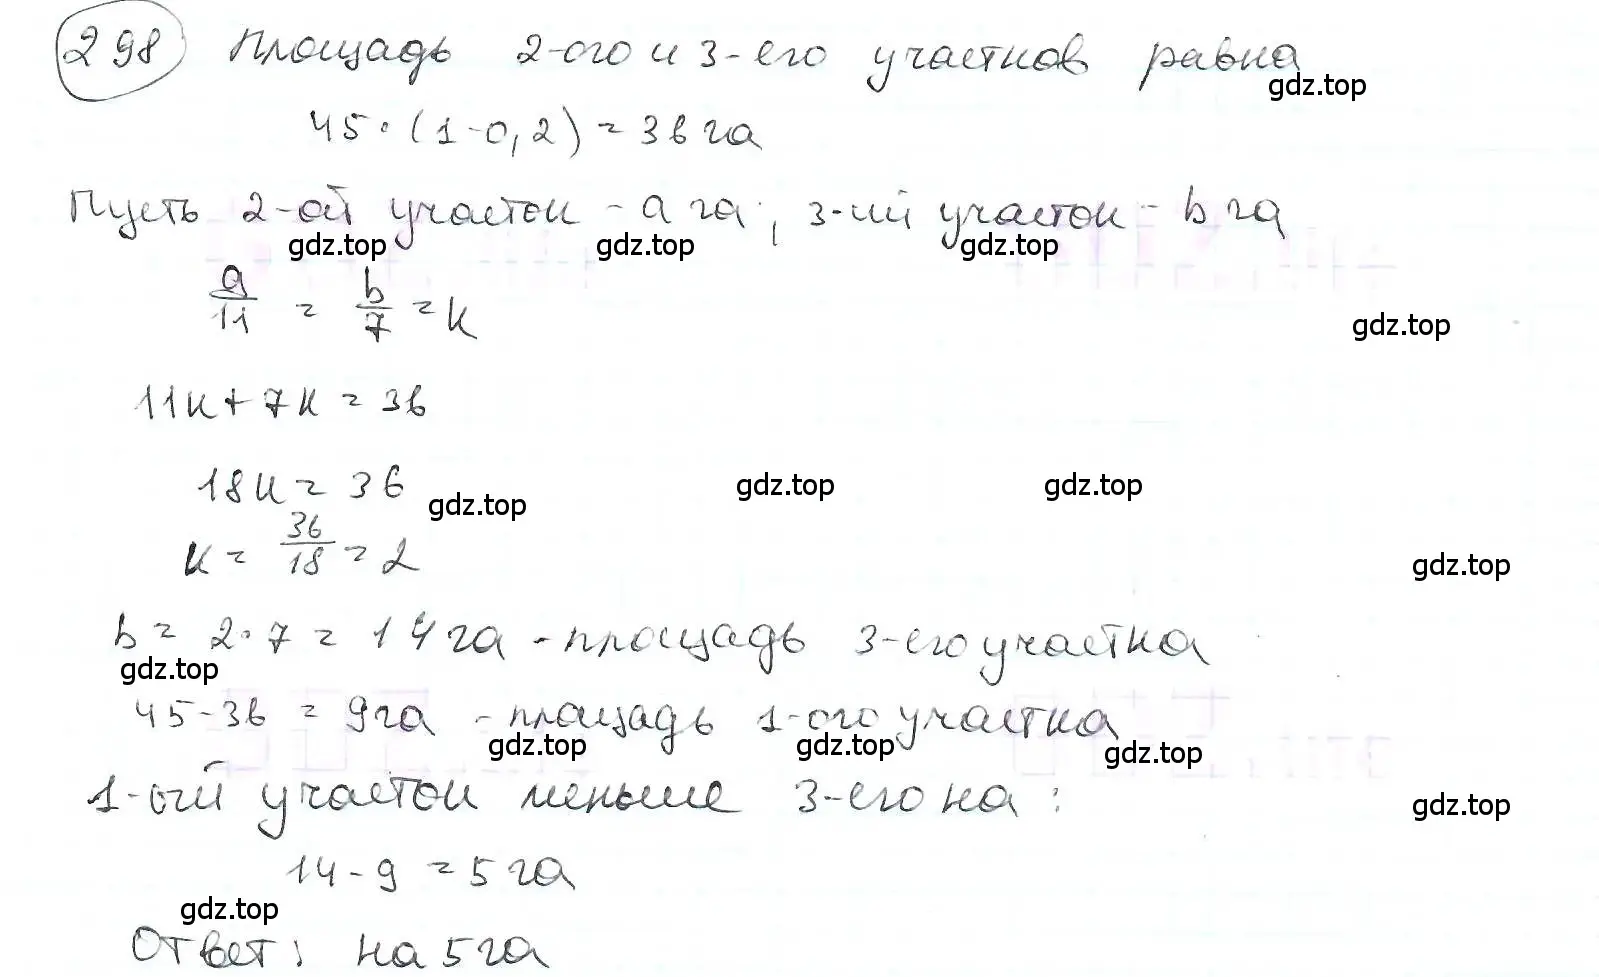 298 Площадь 2-ого и 3-его участков равна
gdz.top
45·(1-0,2)=36 га
Пусть 2-ой участок - a га, 3-ий участок - b га
gdz.top gdz.top gdz.top
a/11 = b/7 = k
gdz.top
11k+7k=36
18k=36
gdz.top gdz.top gdz.top
k = 36/18 = 2
gdz.top
b = 2·7 = 14 га - площадь 3-его участка
gdz.top
45-36 = 9 га - площадь 1-ого участка
gdz.top gdz.top gdz.top
1-ый участок меньше 3-его на:
gdz.top
14-9 = 5 га
gdz.top
Ответ: на 5 га